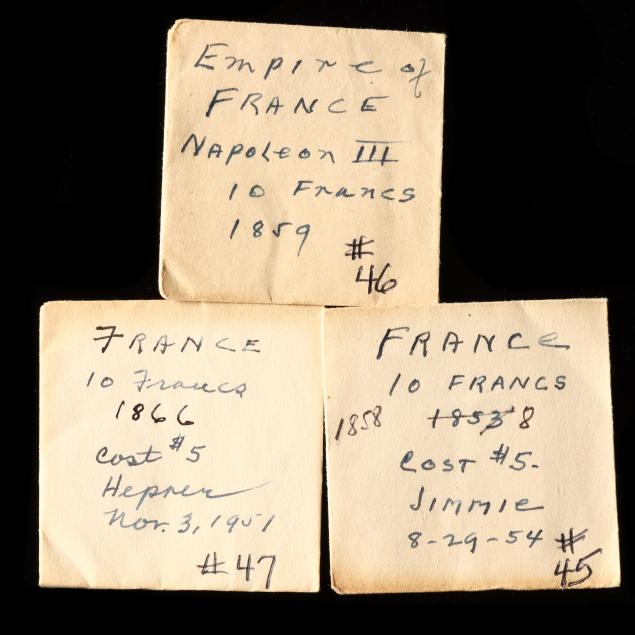 Empire of
FRANCE
Napoleon III
10 Francs
1859
#
46
FRANCE
10 Francs
1866
Cost $5
Hepner
Nov. 3, 1951
#47
FRANCE
10 FRANCS
1858 1853 8
COST $5-
JIMMIE
8-29-54 #
45